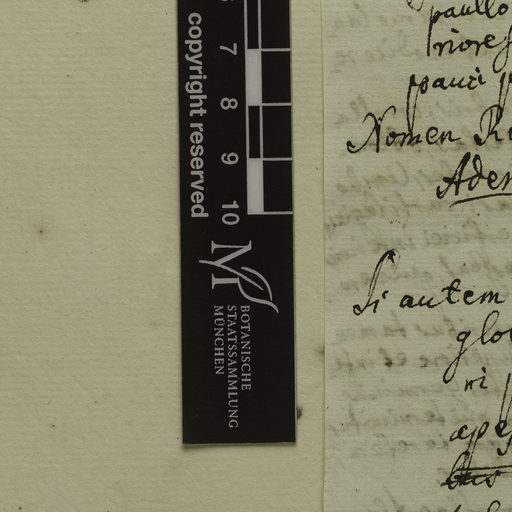 copyright reserved
7
8
9
10
M
BOTANISCHE
STAATSSAMMLUNG
MÜNCHEN
paullo
riores
pauci
Nomen
Aden
Si autem
glo
ni
ape